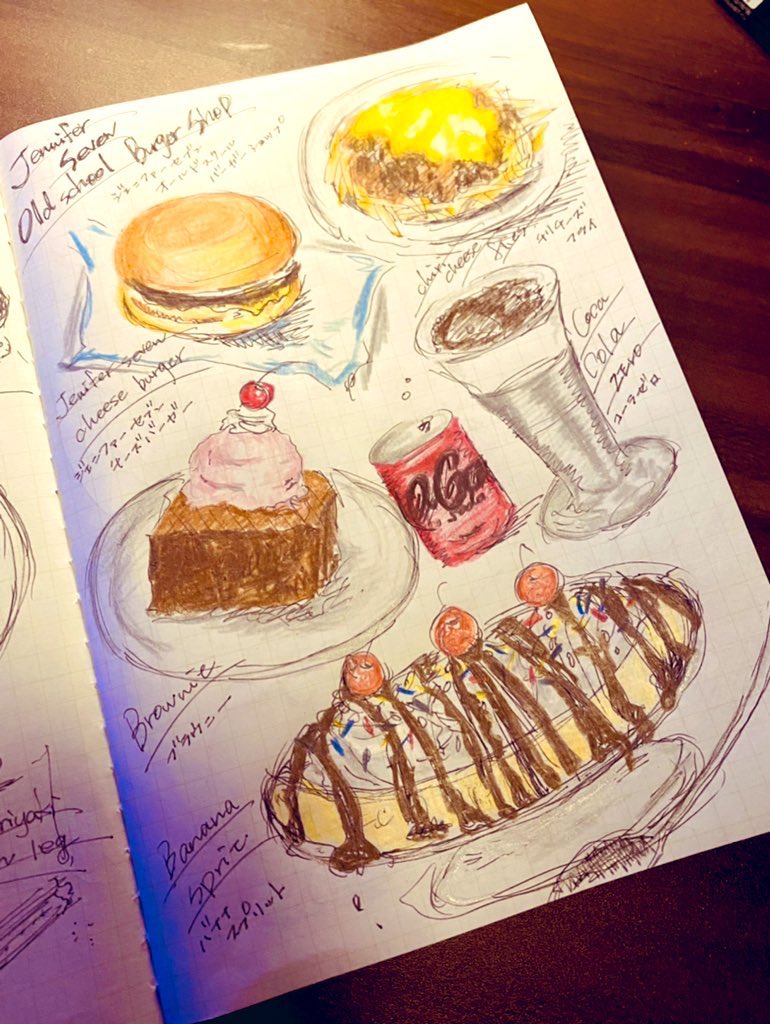 Jennifer
Seven
Old school Burger Shop
ジェニファーセブン
オールドスクール
バーガーショップ
chiri
cheese fries
チリチーズ
フライ
Jenifer seven
cheese burger
ジェニファーセブン
チーズバーガー
Coca
Cola
zero
コーラゼロ
Brownie
ブラウニー
Banana
Spric
バナナ
スプリット
riyaki
leg